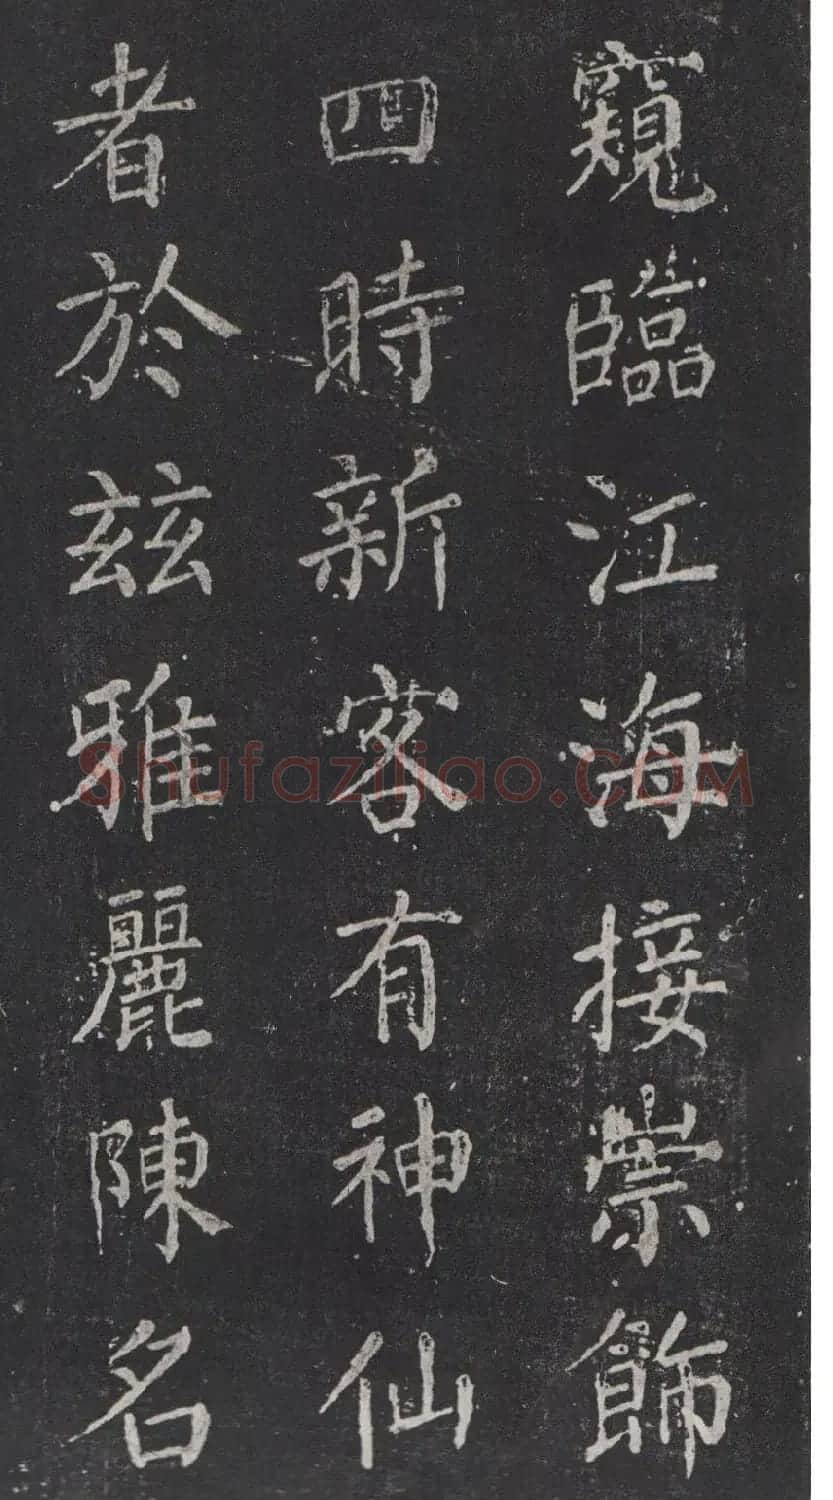 窺臨江海接崇飾
四時新客有神仙
者於茲雅麗陳名
Shufaziliao.com